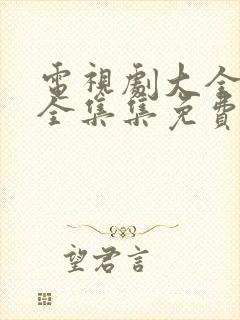 電視劇大全
全集集免費
望君言